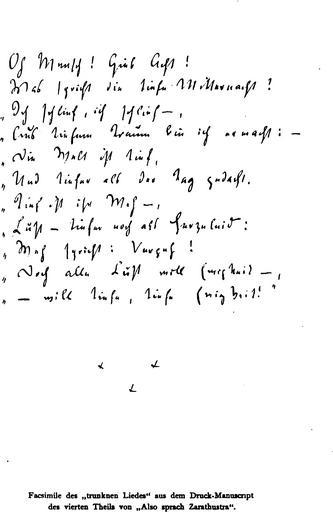 Oh Mensch! Gieb Acht!
Was spricht die tiefe Mitternacht?
„Ich schlief, ich schlief —,
„Aus tiefem Traum bin ich erwacht: —
„Die Welt ist tief,
„Und tiefer als der Tag gedacht.
„Tief ist ihr Weh —,
„Lust — tiefer noch als Herzeleid:
„Weh spricht: Vergeh!
„Doch alle Lust will Ewigkeit —,
„— will tiefe, tiefe Ewigkeit!"
Facsimile des „trunknen Liedes“ aus dem Druck-Manuscript
des vierten Theils von „Also sprach Zarathustra“.